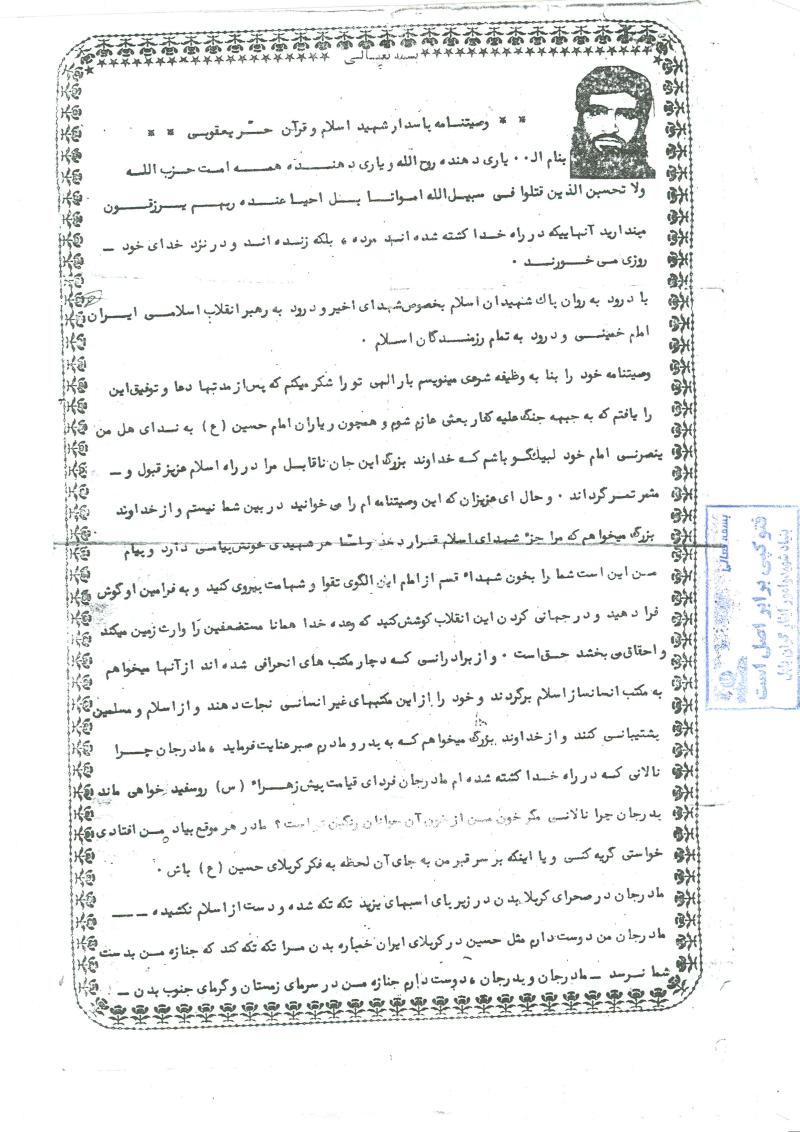 بسمه تعالی
** وصیتنامه پاسدار شهید اسلام و قرآن حر یعقوبی **
بنام ال.. یاری دهنده روح الله و یاری دهنده همه امت حزب الله
ولا تحسبن الذین قتلوا فی سبیل الله امواتا بل احیا عنده ربهم یرزقون
مپندارید آنهاییکه در راه خدا کشته شده اند مرده ، بلکه زنده اند و در نزد خدای خود ـ
روزی می خورند .
با درود به روان پاك شهیدان اسلام بخصوص شهدای اخیر و درود به رهبر انقلاب اسلامی ایران
امام خمینی و درود به تمام رزمندگان اسلام .
وصیتنامه خود را بنا به وظیفه شرعی مینویسم بار الهی تو را شکر میکنم که پس از مدتها دعا و توفیق این
را یافتم که به جبهه جنگ علیه کفار بعثی عازم شوم و همچون ریاران امام حسین (ع) به ندای هل من
ینصرنی امام خود لبیك گو باشم که خداوند بزرگ این جان ناقابل مرا در راه اسلام عزیز قبول و ـ
مثمر ثمر گرداند . و حال ای عزیزان که این وصیتنامه ام را می خوانید در بین شما نیستم و از خداوند
بزرگ میخواهم که مرا جزء شهدای اسلام قرار دهد و اما هر شهیدی خونش پیامی دارد و پیام
من این است شما را بخون شهداء قسم از امام این الگوی تقوا و شهامت پیروی کنید و به فرامین او گوش
فرا دهید و در جهانی کردن این انقلاب کوشش کنید که وعده خدا همانا مستضعفین را وارث زمین میکند
و احقاق می بخشد حق است . و از برادرانی که دچار مکتب های انحرافی شده اند از آنها میخواهم
به مکتب انسانساز اسلام برگردند و خود را از این مکتبهای غیر انسانی نجات دهند و از اسلام و مسلمین
پشتیبانی کنند و از خداوند بزرگ میخواهم که به پدر و مادرم صبر عنایت فرماید ، مادر جان چرا
نالانی که در راه خدا کشته شده ام مادر جان فردای قیامت پیش زهراء (س) روسفید خواهی ماند
پدر جان چرا نالانی مگر خون من از خون آن جوانان رنگین تر است ؟ مادر هر موقع بیاد من افتادی
خواستی گریه کنی و یا اینکه بر سر قبر من به جای آن لحظه به فکر کربلای حسین (ع) باش .
مادر جان در صحرای کربلا بدن در زیر پای اسبهای یزید تکه تکه شده و دست از اسلام نکشیده ـ ـ ـ
مادر جان من دوست دارم مثل حسین در کربلای ایران خمپاره بدن مرا تکه تکه کند که جنازه من بدست
شما نرسد ـ مادر جان و پدر جان ، دوست دارم جنازه من در سرمای زمستان و گرمای جنوب بدن ـ
بسمه تعالی
فتوکپی برابر اصل است